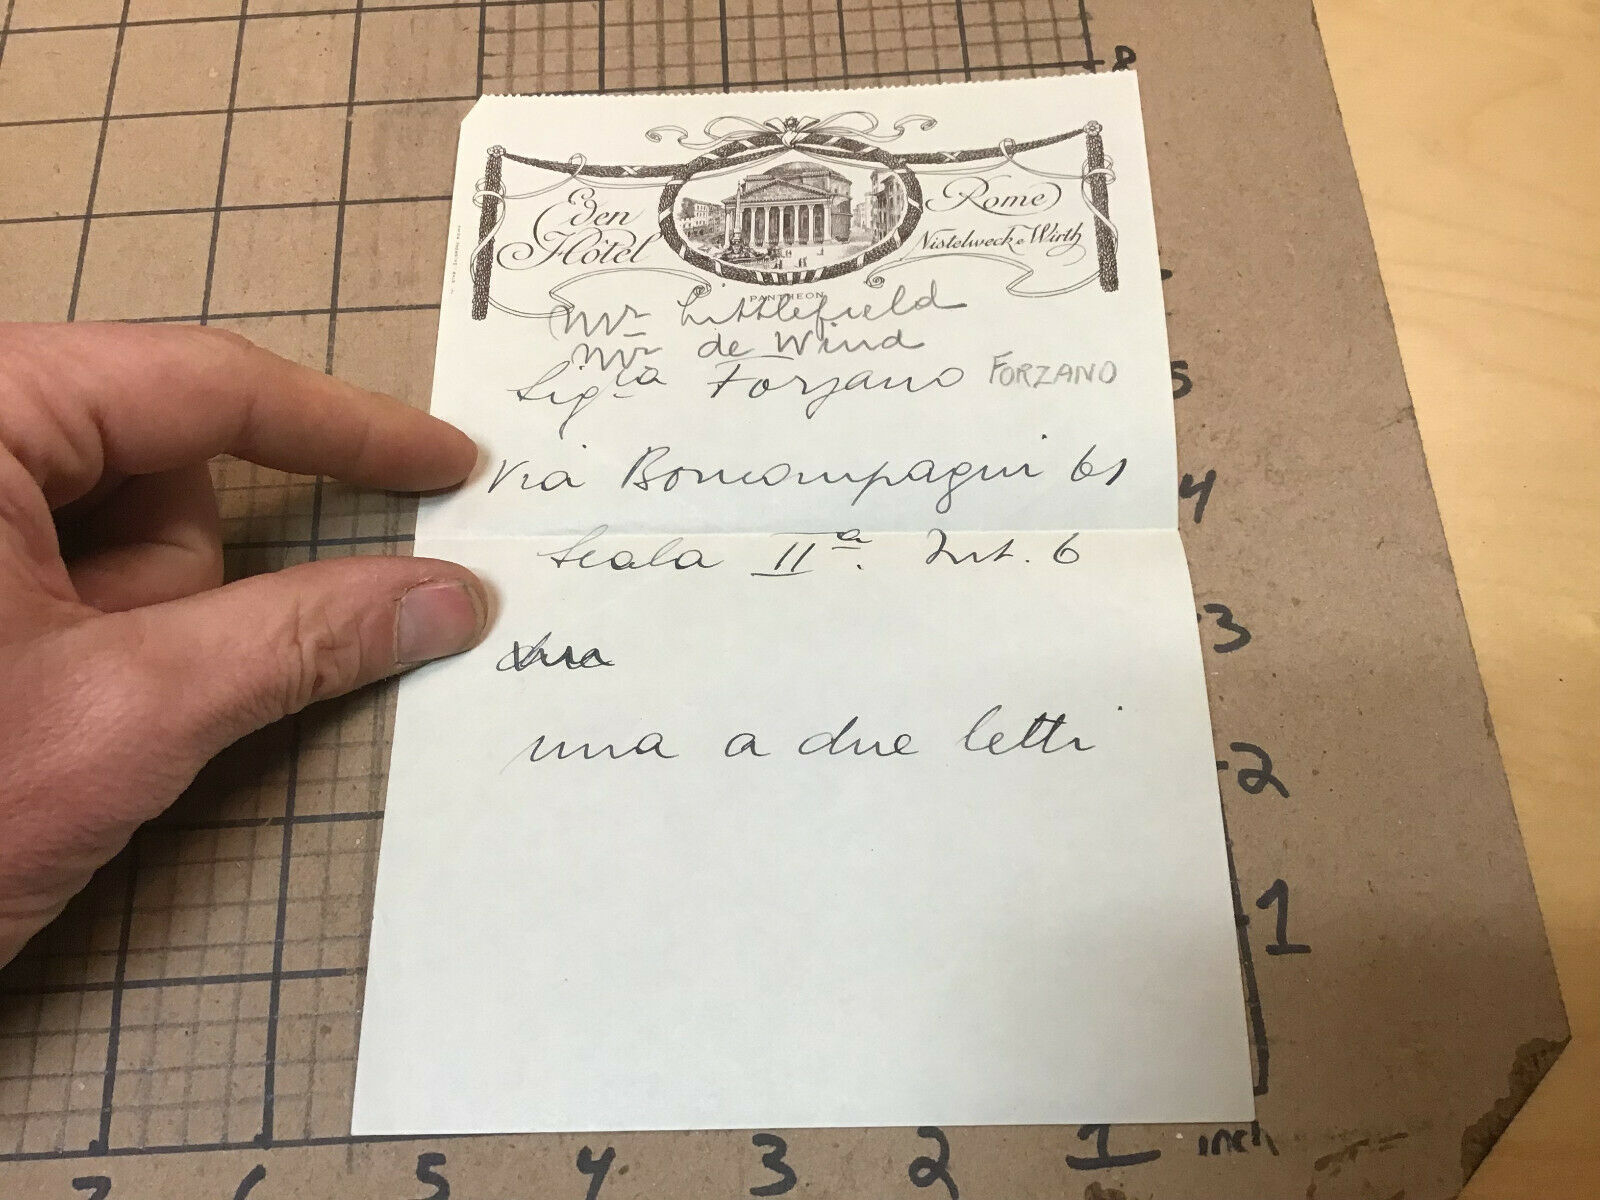 Eden Hôtel
Rome
Nistelweck e Wirth
PANTHEON
Mr Littlefield
Mr de Wind
Sigra Forzano FORZANO
Via Boncompagni 61
Scala IIa. Int. 6
una a due letti
8
5
4
3
2
1
7
6
5
4
3
2
1 inch